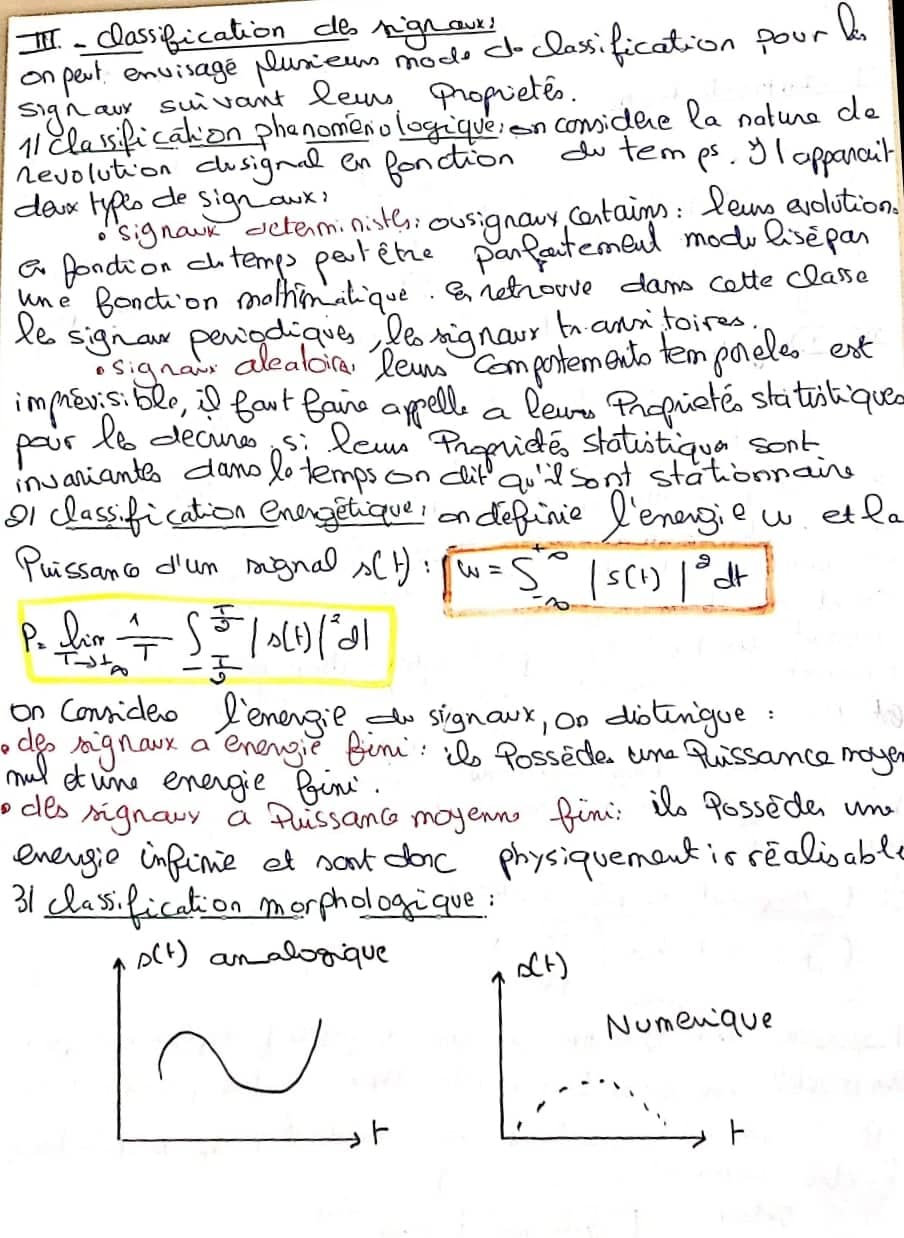 III. - classification des signaux:
on peut envisagé plusieurs mode de classification pour les
signaux suivant leurs Proprietés.
1/ classification phenoménologique: on considere la nature de
l'evolution du signal en fonction du temps. Il apparait
deux types de signaux:
• signaux deterministes: ou signaux certains: leurs evolution
en fonction du temps peut être parfaitement modelisé par
une fonction mathématique. On retrouve dans cette classe
les signaux periodiques, les signaux transitoires.
• signaux aleatoires leurs comportements temporeles est
imprévisible, il faut faire appelle a leurs Proprietés statistiques
pour les decrires. si leurs Propriétés statistiques sont
invariantes dans le temps on dit qu'il sont stationnaire
2/ classification energétique: on définie l'energie w et la
Puissance d'un signal s(t): w = ∫_{-∞}^{+∞} |s(t)|² dt
P = lim_{T→+∞} 1/T ∫_{-T/2}^{T/2} |s(t)|² dt
on Consideo l'energie du signaux, on distingue :
• des signaux a energie fini: ils Possédes une Puissance moyen
nul et une energie fini.
• des signaux a Puissance moyenne fini: ils Possédes une
energie infinie et sont donc physiquement irréalisable
3/ classification morphologique:
s(t) analogique
s(t)
Numerique
t
t